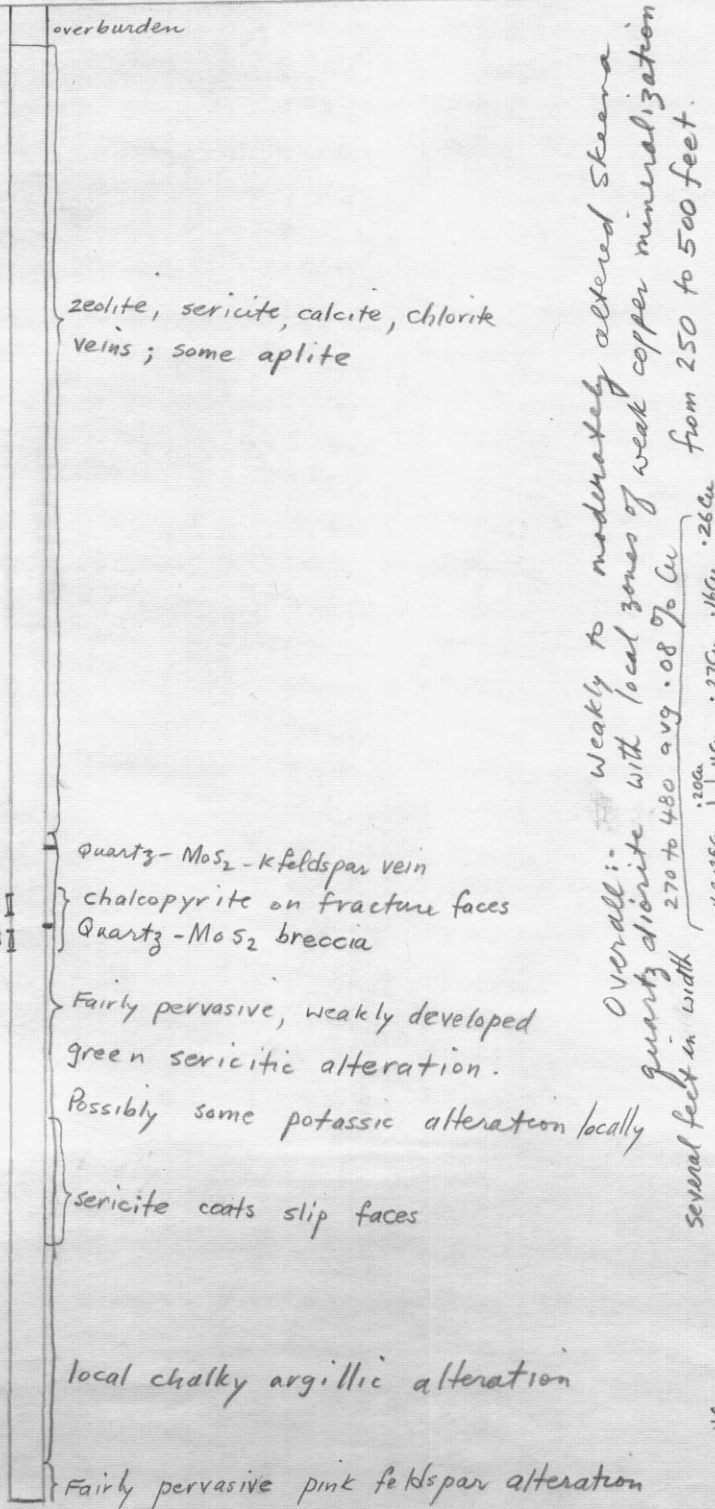 overburden
zeolite, sericite, calcite, chlorite
veins ; some aplite
Quartz-MoS2-Kfeldspar vein
chalcopyrite on fracture faces
Quartz-MoS2 breccia
Fairly pervasive, weakly developed
green sericitic alteration.
Possibly some potassic alteration locally
sericite coats slip faces
local chalky argillic alteration
Fairly pervasive pink feldspar alteration
Overall:- Weakly to moderately altered Skeena
quartz diorite with local zones of weak copper mineralization
several feet in width
270 to 480 avg .08 % Cu
from 250 to 500 feet.
.20Cu
.27Cu .16Cu .26Cu